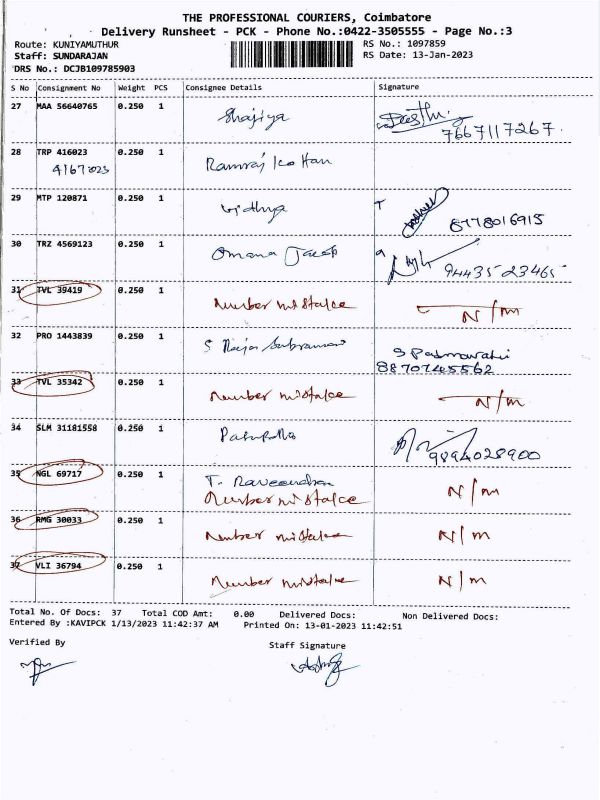 THE PROFESSIONAL COURIERS, Coimbatore
Delivery Runsheet - PCK - Phone No.:0422-3505555 - Page No.:3
Route: KUNIYAMUTHUR RS No.: 1097859
Staff: SUNDARAJAN RS Date: 13-Jan-2023
DRS No.: DCJB109785903
S No Consignment No Weight PCS Consignee Details Signature
27 MAA 56640765 0.250 1 Shajiya
7667117267.
28 TRP 416023 0.250 1 Ramraj Kottan
4167023
29 MTP 120871 0.250 1 Vidhya
8778016915
30 TRZ 4569123 0.250 1 Omana Jacob
9443523465
31 TVL 39419 0.250 1 Number mistake N/m
32 PRO 1443839 0.250 1 S Padmavathi
8870745562
33 TVL 35342 0.250 1 Number mistake N/m
34 SLM 31181558 0.250 1
9894028900
35 NGL 69717 0.250 1 T. Raveendran
Number mistake N/m
36 RMG 30033 0.250 1 Number mistake N/m
37 VLI 36794 0.250 1 Number mistake N/m
Total No. Of Docs: 37 Total COD Amt: 0.00 Delivered Docs: Non Delivered Docs:
Entered By :KAVIPCK 1/13/2023 11:42:37 AM Printed On: 13-01-2023 11:42:51
Verified By Staff Signature